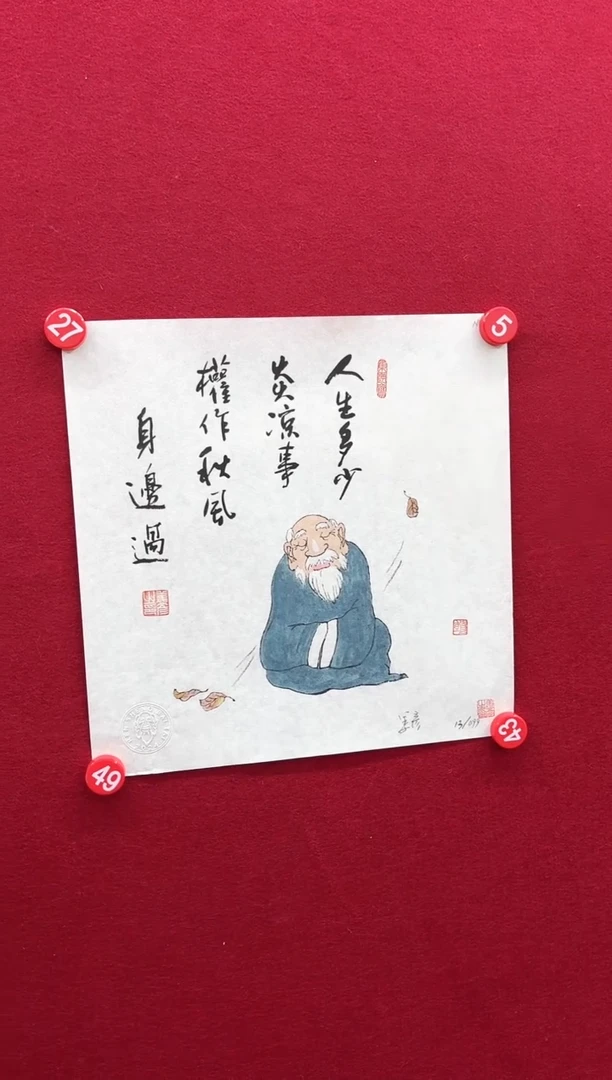 人生多少
炎凉事
權作秋風
身邊過
27
5
49
43